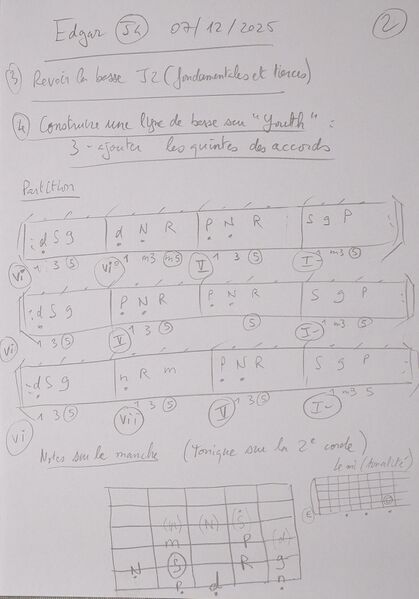 Edgar J4 07/12/2025 2
3) Revoir la basse J2 (fondamentales et tierces)
4) Construire une ligne de basse sur "Youth" :
3 - ajouter les quintes des accords
Partition
d S g d N R P N R S g P
vi 1 3 5 vi° 1 m3 m5 V 1 3 5 I- 1 m3 5
d S g P N R P N R S g P
vi 1 3 5 V 1 3 5 5 I- 1 m3 5
d S g n R m P N R S g P
vi 1 3 5 vii 1 3 5 V 1 3 5 I- 1 m3 5
Notes sur le manche (tonique sur la 2e corde)
le mi (tonalité)
(n) (N) (S)
m P (d)
N S R g
P d n